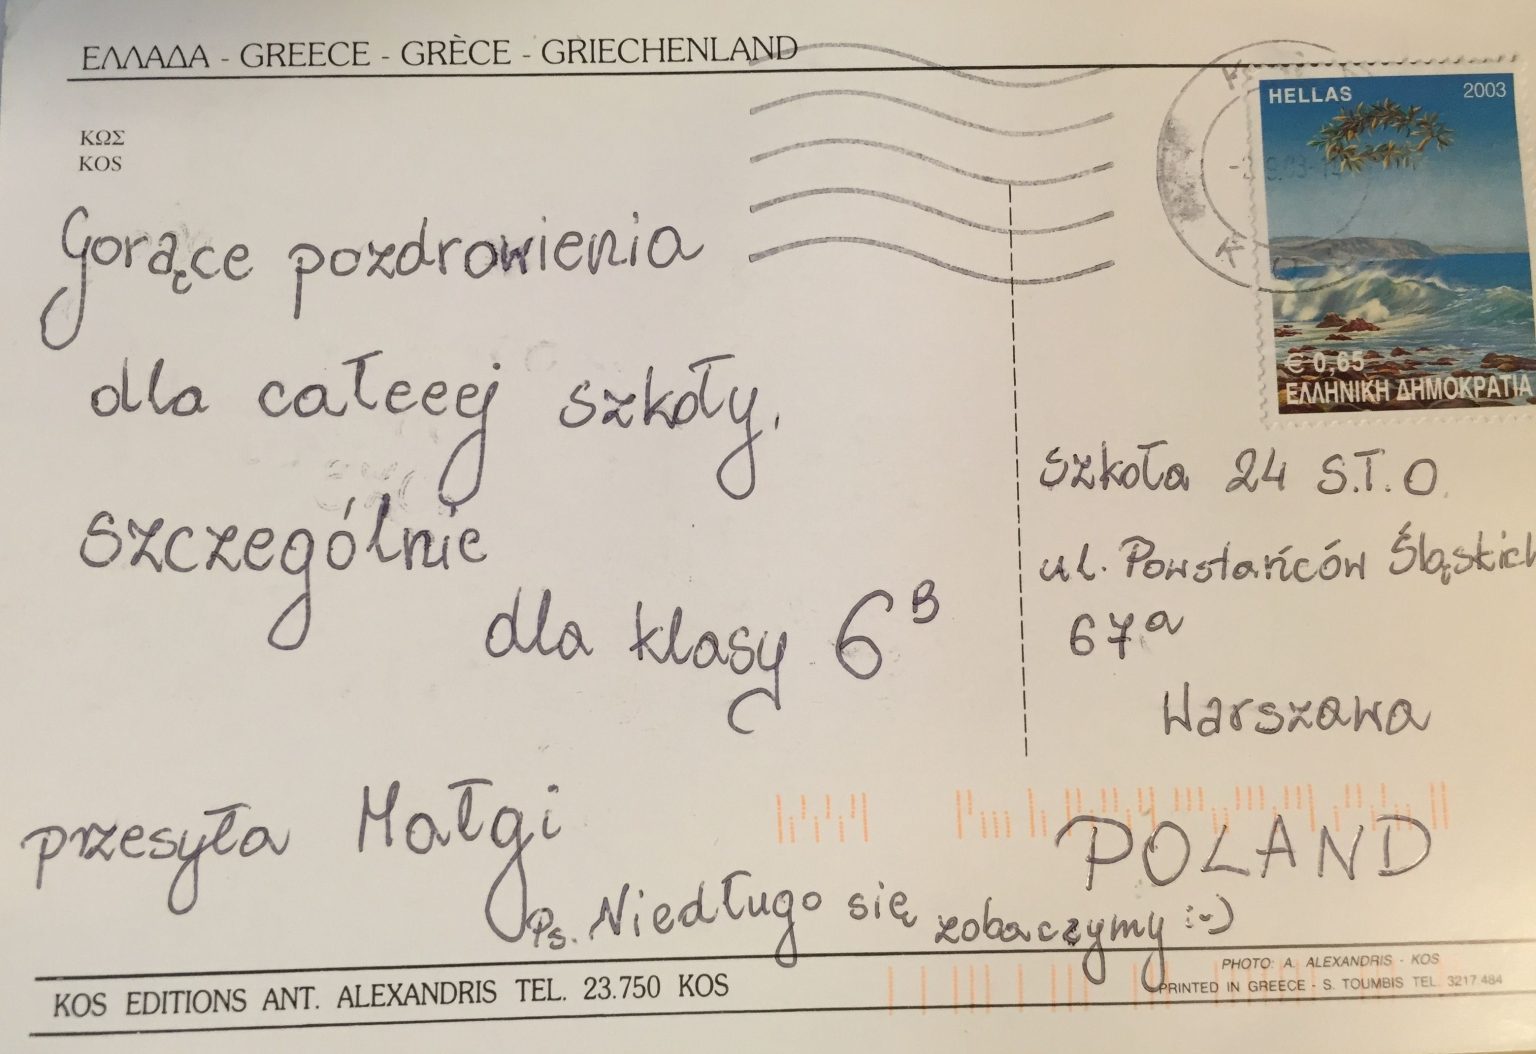 ΕΛΛΑΔΑ - GREECE - GRÈCE - GRIECHENLAND
ΚΩΣ
KOS
Gorące pozdrowienia
dla całeeej szkoły.
Szczególnie
dla klasy 6B
przesyła Małgi
Ps. Niedługo się zobaczymy :-)
HELLAS 2003
€ 0,65
ΕΛΛΗΝΙΚΗ ΔΗΜΟΚΡΑΤΙΑ
Szkoła 24 S.T.O.
ul. Powstańców Śląskich
67a
Warszawa
POLAND
PHOTO: A. ALEXANDRIS - KOS
PRINTED IN GREECE - S. TOUMBIS TEL. 3217.484
KOS EDITIONS ANT. ALEXANDRIS TEL. 23.750 KOS